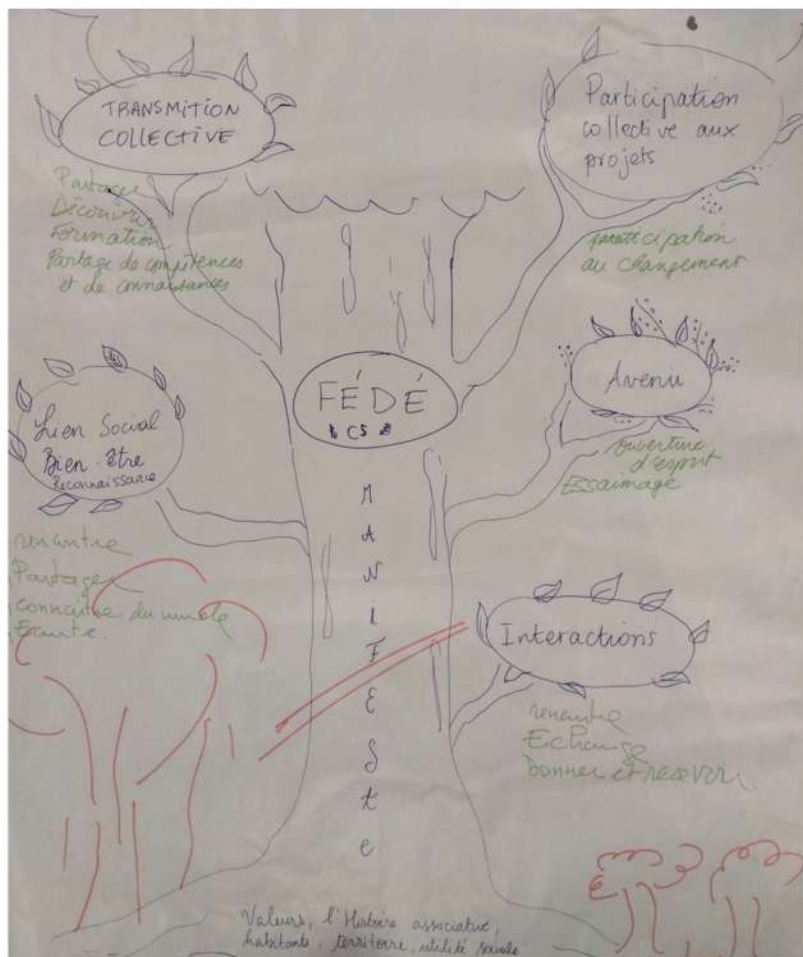 TRANSMITION
COLLECTIVE
Partage
Découvrir
Formation
Partage de compétences
et de connaissances
Participation
collective aux
projets
participation
au changement
FÉDÉ
CS
MANIFESTE
Avenir
ouverture
d'esprit
Essaimage
Lien Social
Bien-être
Reconnaissance
rencontre
Partager
connaître du monde
Ecoute.
Interactions
rencontre
Echange
Donner et recevoir.
Valeurs, l'Histoire associative,
habitants, territoire, utilité sociale